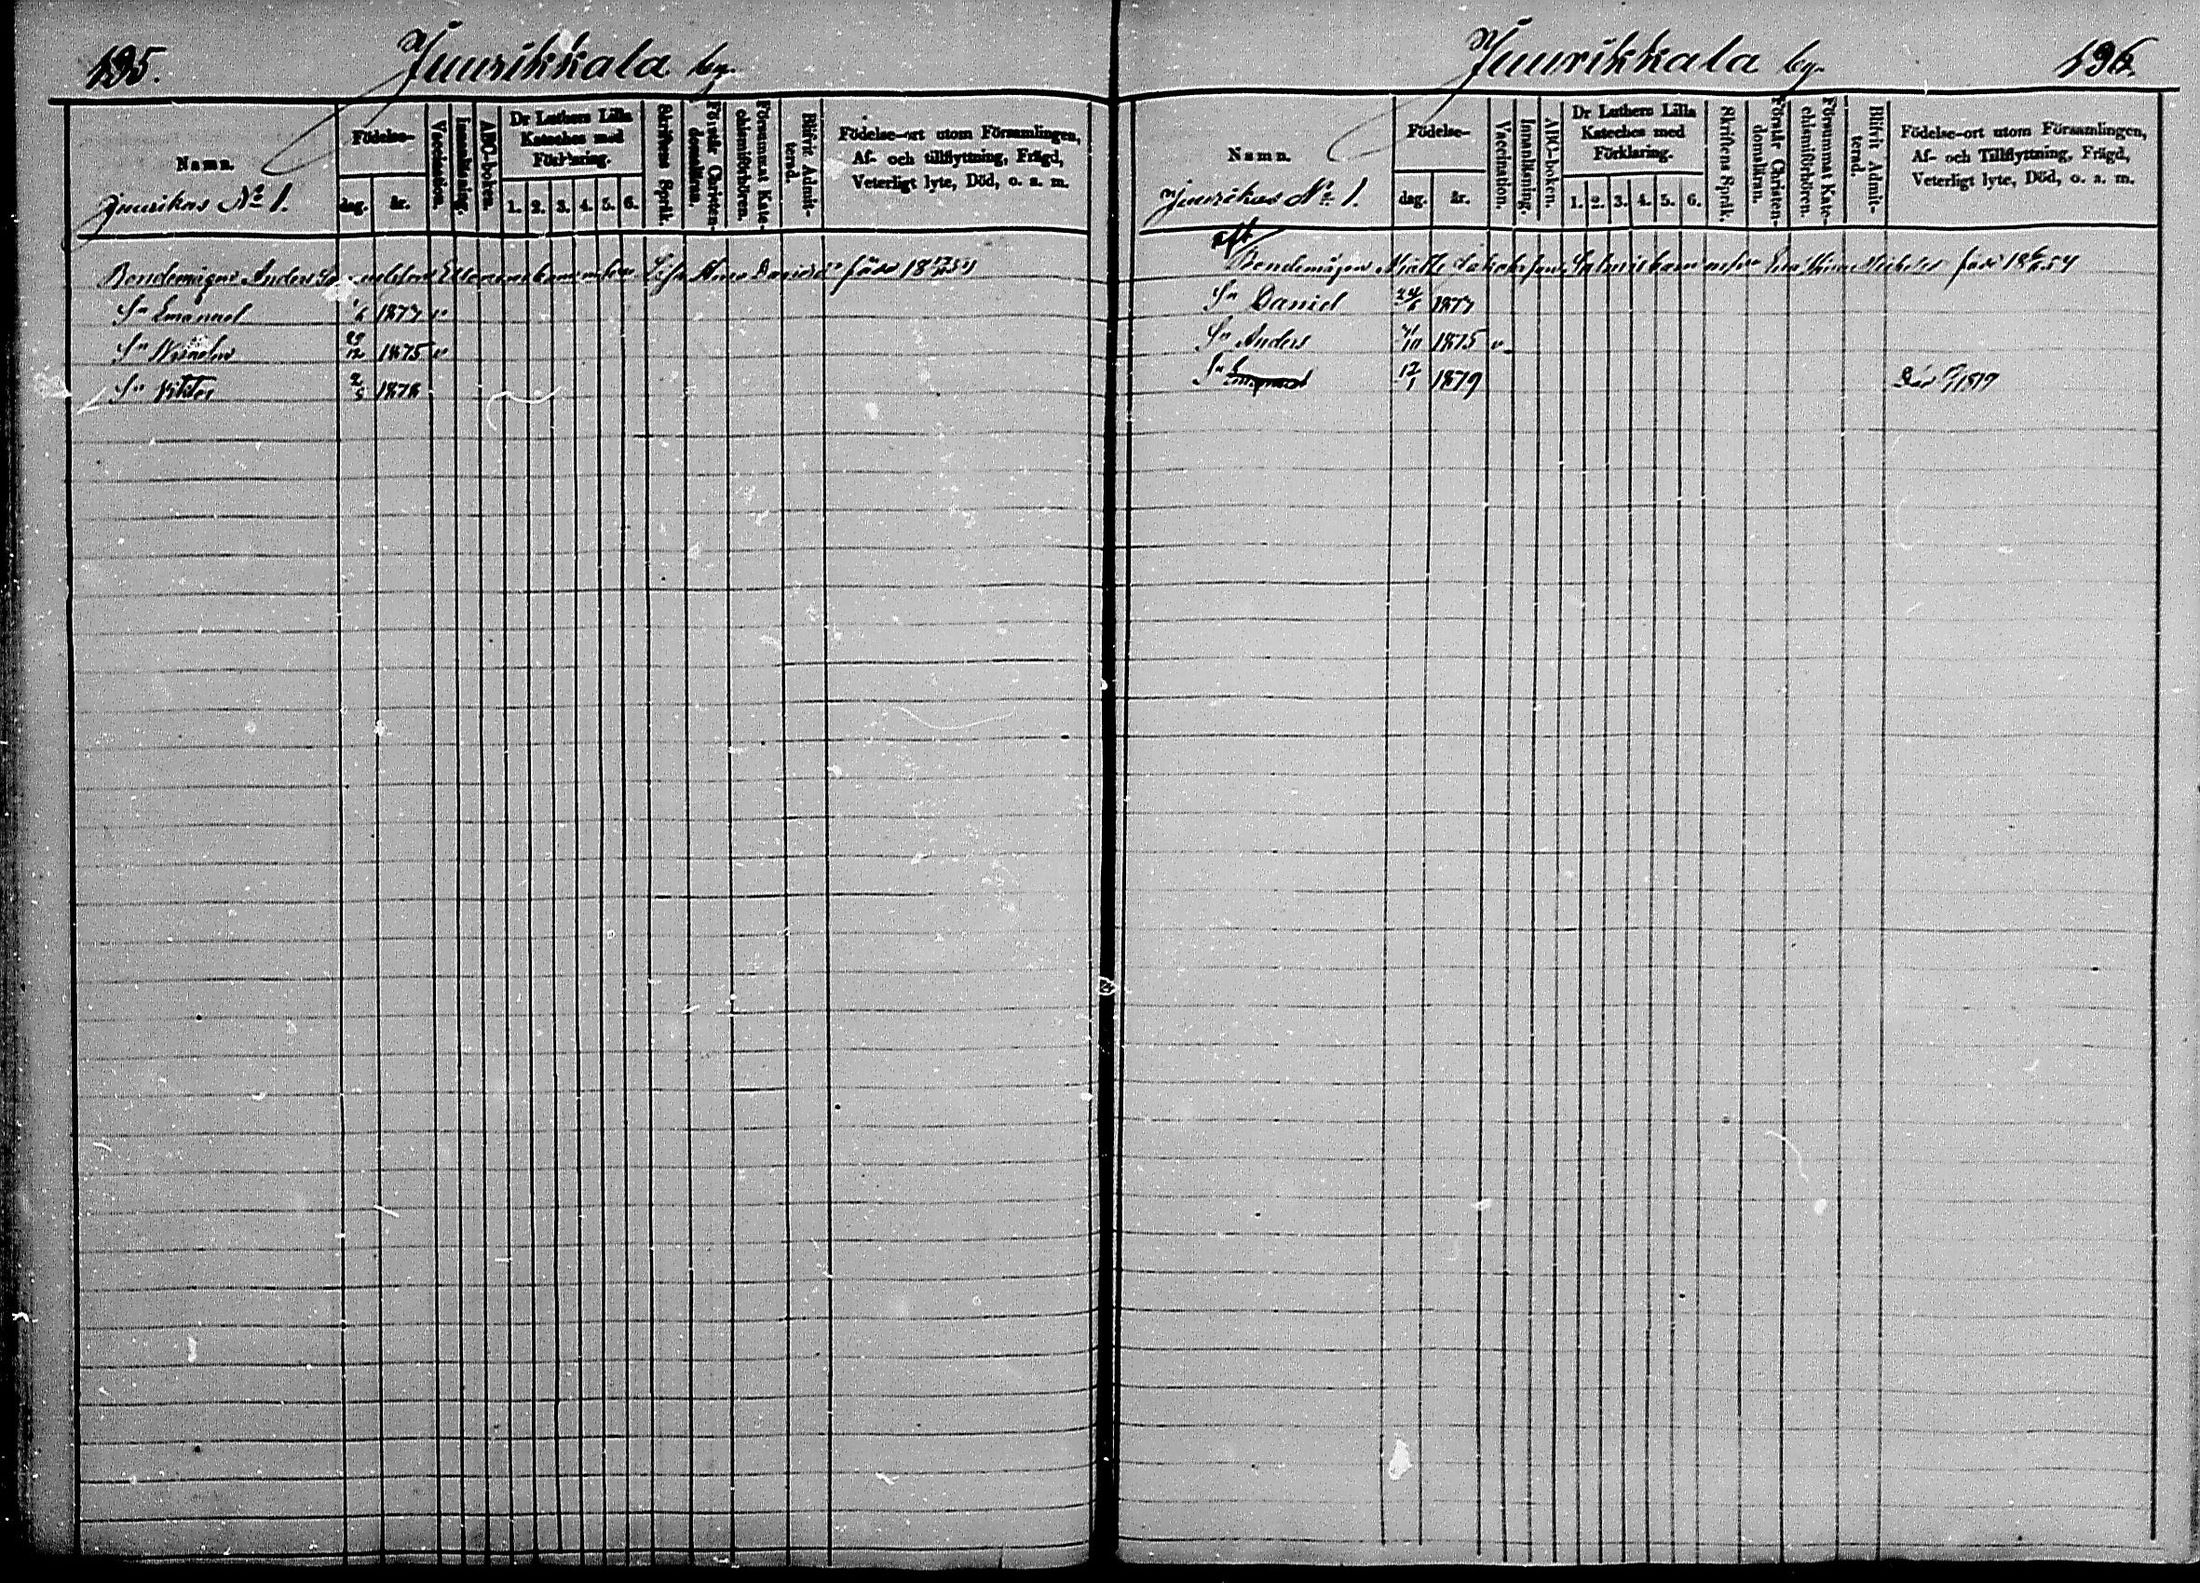 195.
Juurikkala by.
Namn.
Juurikas No 1.
Födelse-
dag.
år.
Vaccination.
Innanläsning.
ABC-boken.
Dr Luthers Lilla
Kateches med
Förklaring.
1. 2. 3. 4. 5. 6.
Skriftens Språk.
Förstår Christen-
domsläran.
Försummat Kate-
chismiförhören.
Blifvit Admit-
terad.
Födelse-ort utom Församlingen,
Af- och tillflyttning, Frägd,
Veterligt lyte, Död, o. s. m.
Bondemågen Anders Ellonens barn Anna
Sn Emanuel 1/6 1877 v
Sn Wilhelm 29/12 1875 v
Sn Viktor 2/5 1878
Juurikkala by.
196.
Namn.
Juurikas No 1.
Födelse-
dag.
år.
Vaccination.
Innanläsning.
ABC-boken.
Dr Luthers Lilla
Kateches med
Förklaring.
1. 2. 3. 4. 5. 6.
Skriftens Språk.
Förstår Christen-
domsläran.
Försummat Kate-
chismiförhören.
Blifvit Admit-
terad.
Födelse-ort utom Församlingen,
Af- och Tillflyttning, Frägd,
Veterligt lyte, Död, o. s. m.
afl.
Bondemågen Jakobsson Salmis barn
Sn Daniel 24/6 1877
Sn Anders 1875 v
Sn 12/1 1879 Död 1879